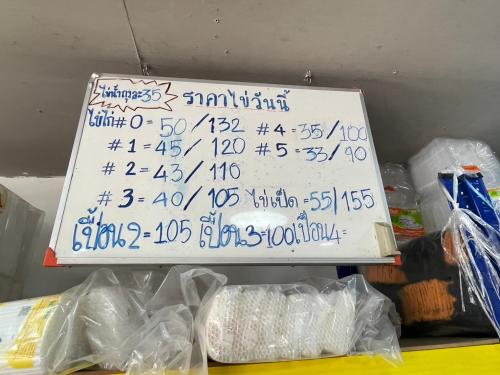 ไข่น้ำถุงละ35
ราคาไข่วันนี้
ไข่ไก่ #0 = 50/132 #4 = 35/100
#1 = 45/120 #5 = 33/90
#2 = 43/110
#3 = 40/105 ไข่เป็ด = 55/155
เปื้อน2 = 105 เปื้อน3=100 เปื้อน4=